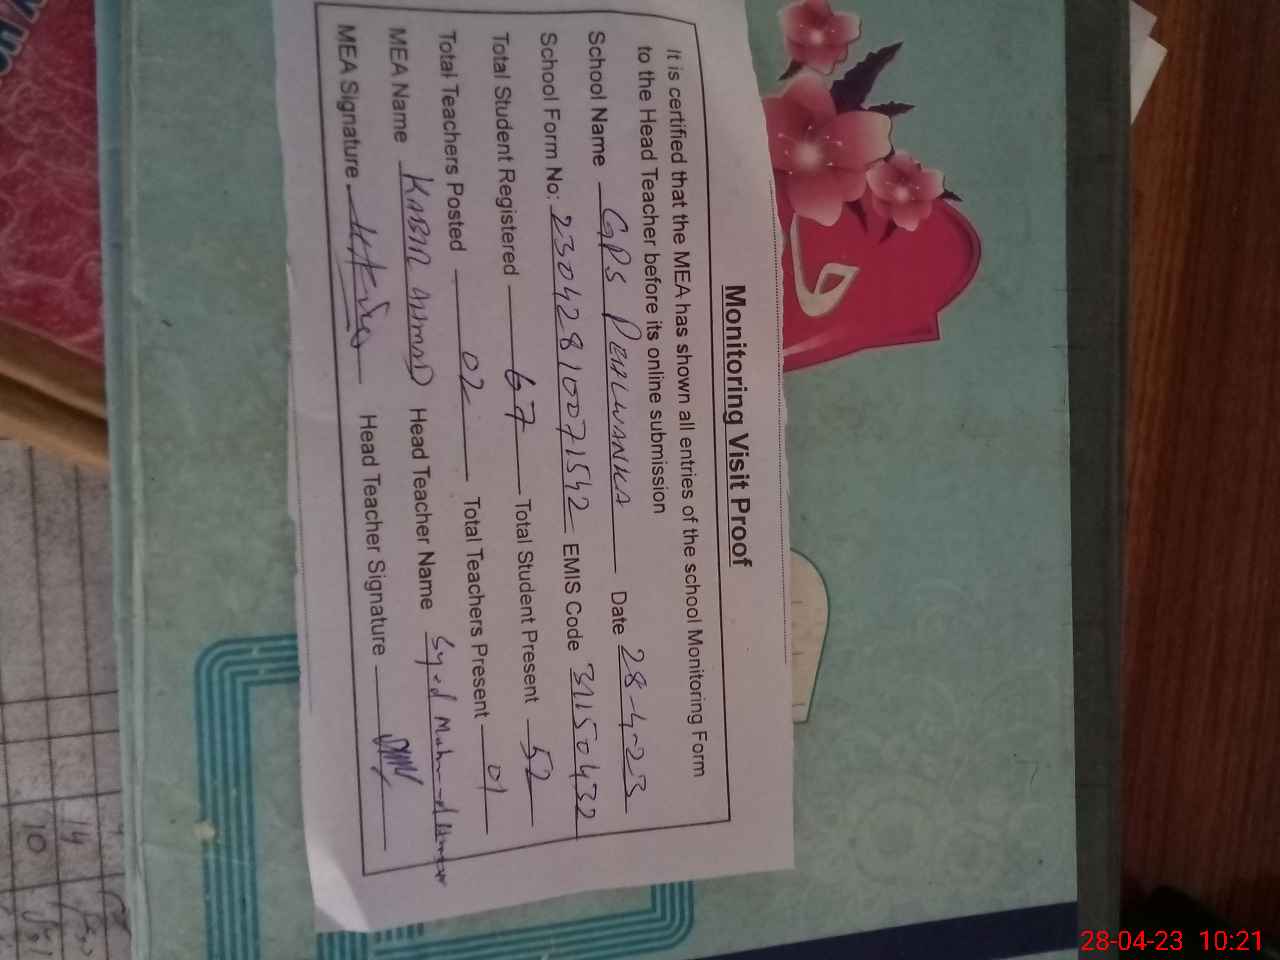 Monitoring Visit Proof
It is certified that the MEA has shown all entries of the school Monitoring Form
to the Head Teacher before its online submission
School Name GPS PEHLWANKA Date 28-4-23
School Form No: 23042810071542 EMIS Code 31150432
Total Student Registered 67 Total Student Present 52
Total Teachers Posted 02 Total Teachers Present 01
MEA Name KABIR AHMAD Head Teacher Name Syed
MEA Signature Head Teacher Signature
و
14
10
28-04-23 10:21